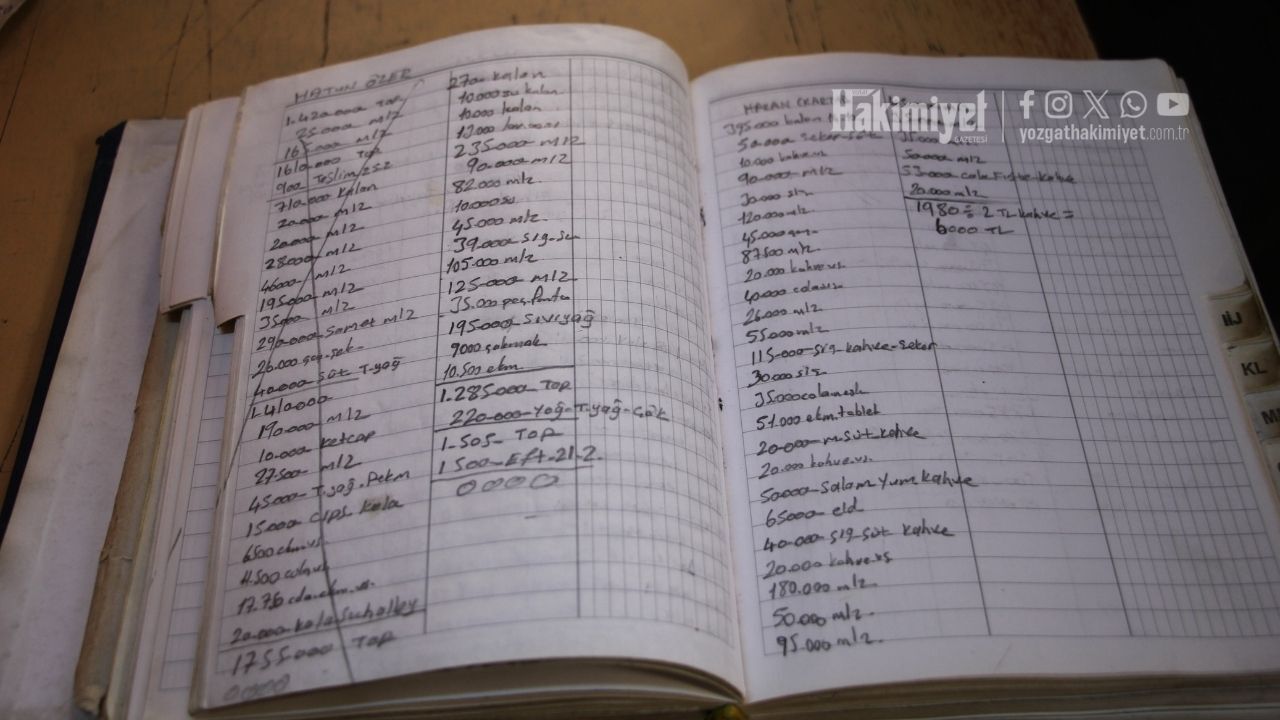 HATUN ÖZER
1.420.000 TOP
25.000 m/2
165.000 m/2
1610.000 TOP
900 Teslim/252
710.000 kalan
20.000 m/2
20.000 m/2
28000 m/2
46000 m/2
195.000 m/2
35000 m/2
290.000 Samet m/2
26.000
40.000 süt T.yağ
1.410.000
190.000 m/2
10.000 ketcap
27.500 m/2
45.000 T.yağ.Pekm
15.000 cips kola
6500 ekm.vs.
4.500
17.750 cola.ekm.vs.
20.000 kola
1755.000 TOP
0000
270 kalan
10.000 su kalan
10.000 kalan
13.000
235.000 m/2
90.000 m/2
82.000 m/2
10.000 su
45.000 m/2
39.000 sig-su
105.000 m/2
125.000 m/2
35.000 peç.
195.000 sıvıyağ
9000 çakmak
10.500 ekm.
1.285.000 TOP
220.000 yağ-T.yağ-
1.505 TOP
1500 Eft-21.2
0000
HASAN
395.000 kalan
50.000 seker-süt
10.000 kahve.vs
90.000 m/2
30.000 sig
120.000 m/2
45.000
87500 m/2
20.000 kahve.vs.
40.000 cola.vs
26.000 m/2
55.000 m/2
115.000 sig-kahve-seker
30.000 sig
35000 cola
51.000 ekm.tablet
20.000 m.süt.kahve
20.000 kahve.vs.
50000 salam yum kahve
65000 eld
40.000 sig-süt kahve
20.000 kahve.vs
180.000 m/2
50.000 m/2
95.000 m/2
35000
50.000 m/2
53.000 cola kahve
20.000 m/2
1980 ÷ 2 TL kahve =
6000 TL
Hakimiyet
GAZETESİ
yozgathakimiyet.com.tr
IİJ
KL